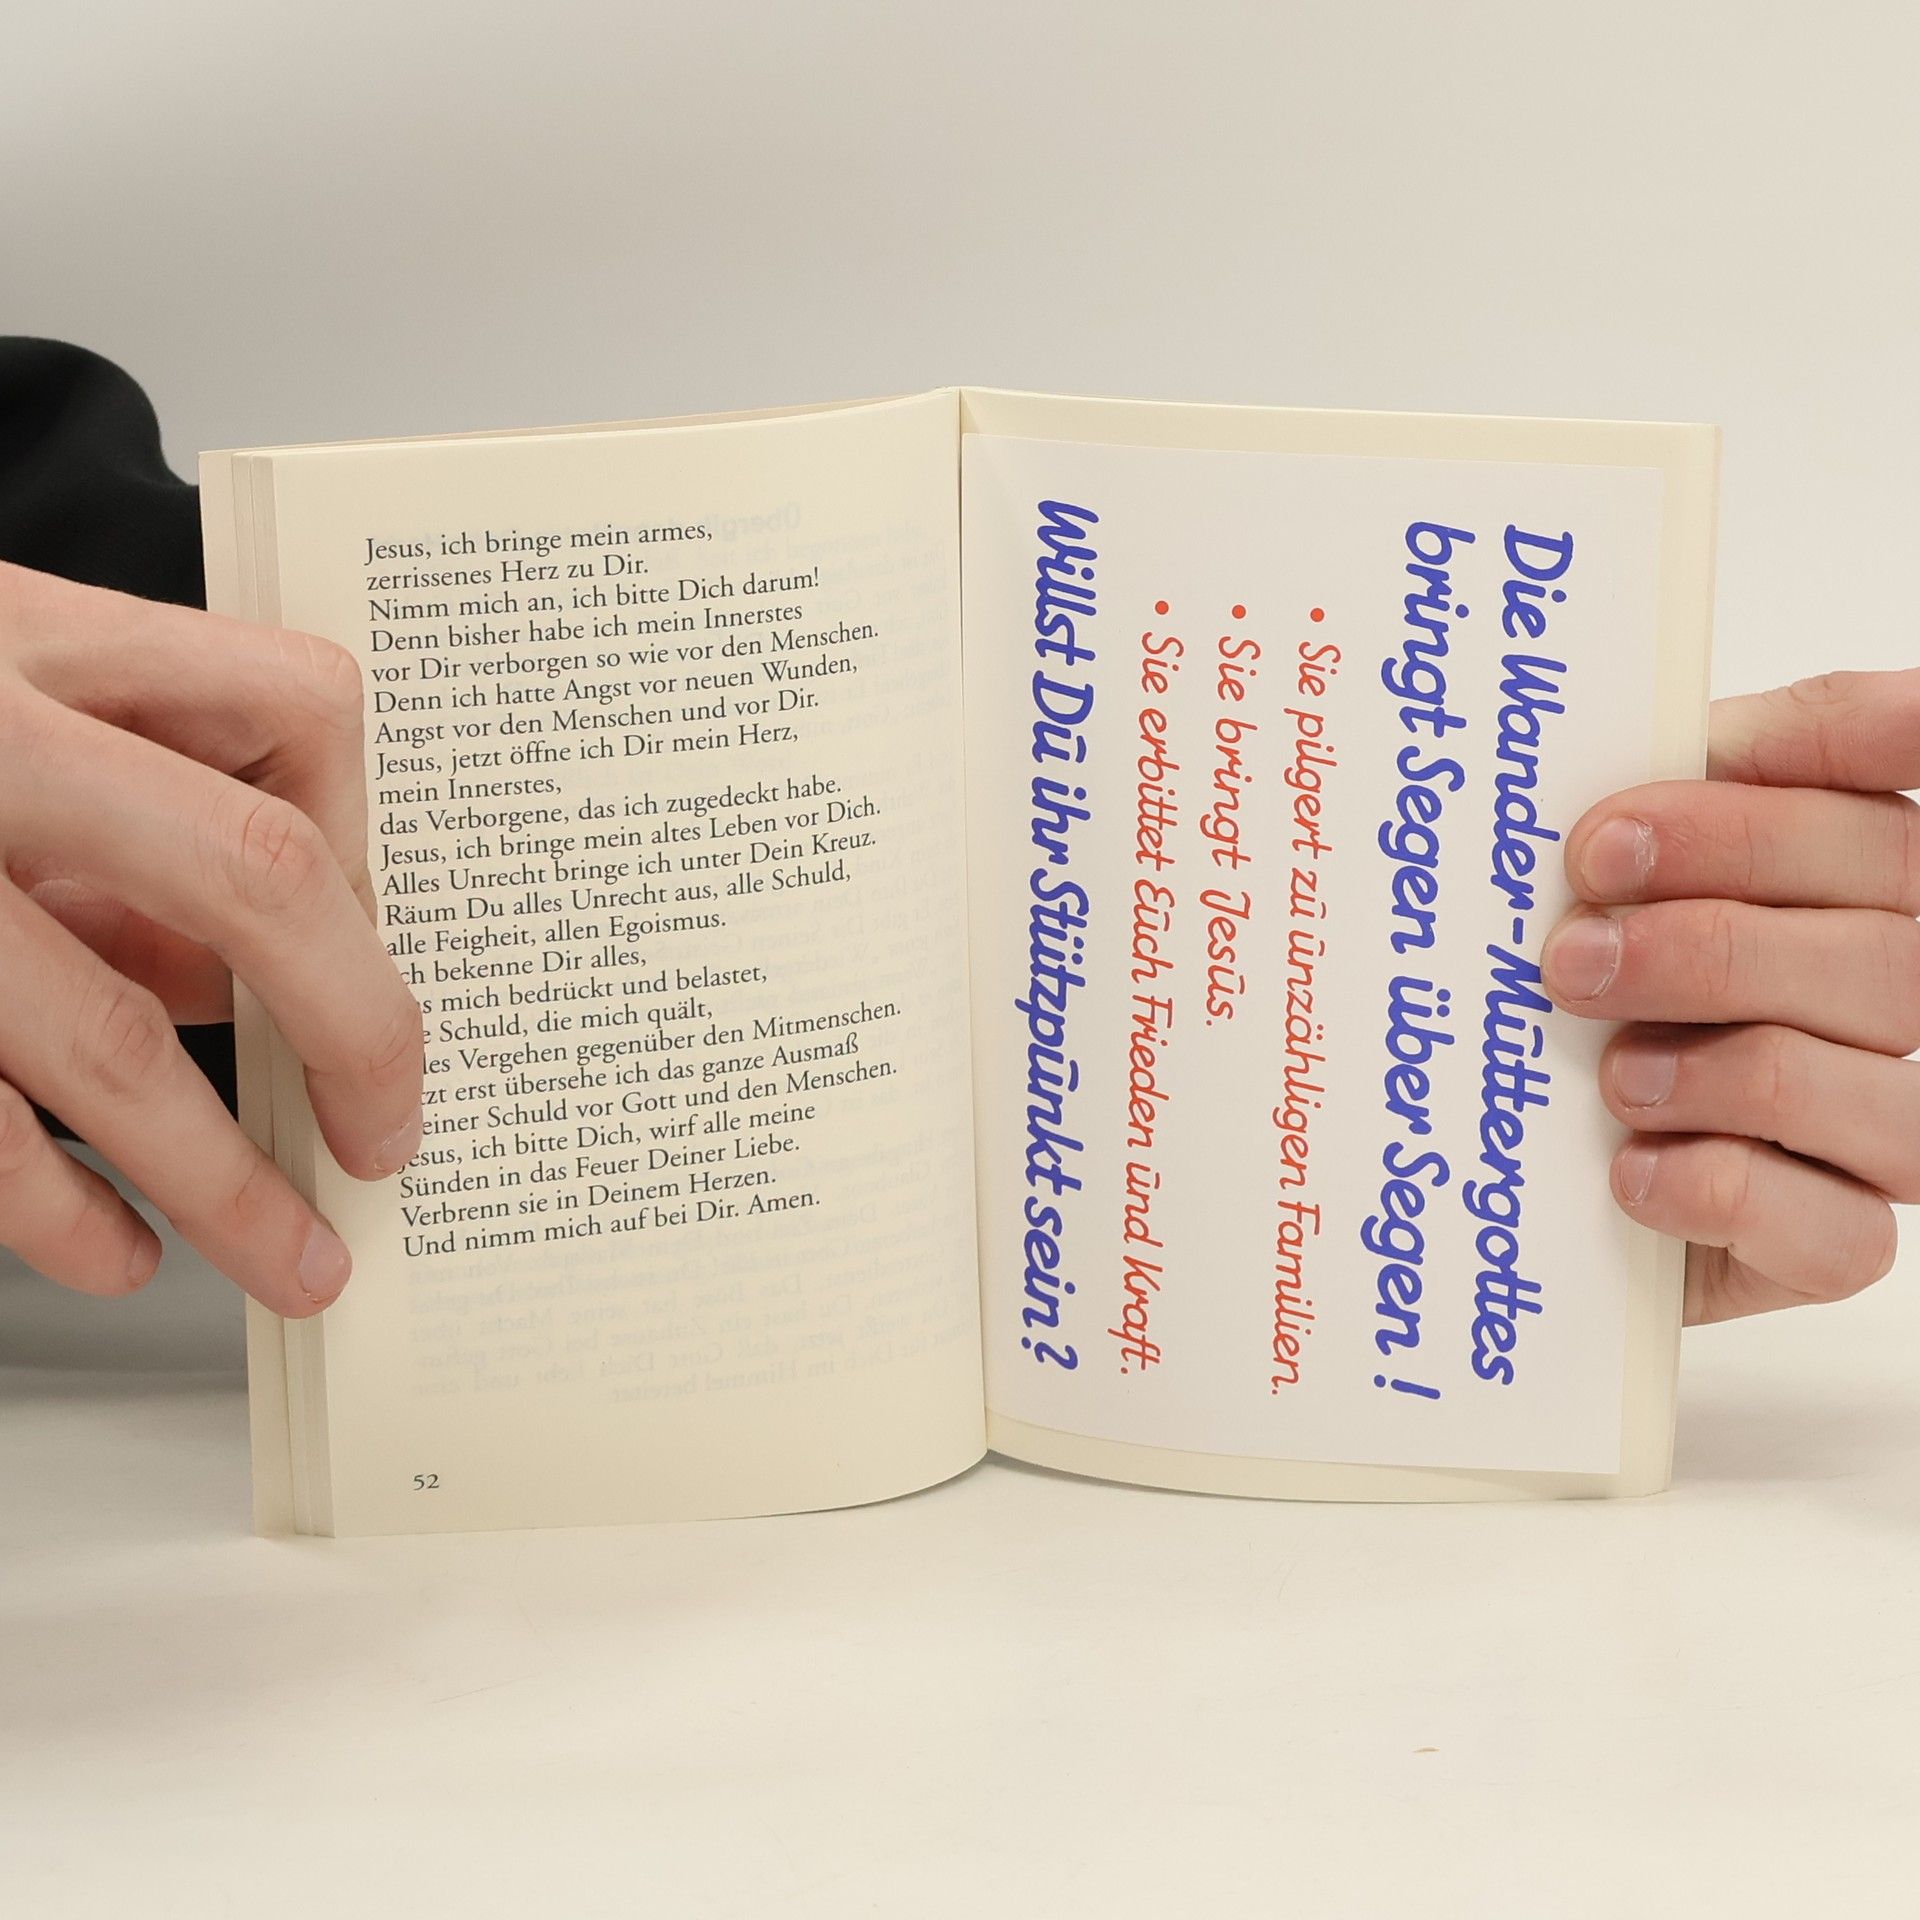 Jesus, ich bringe mein armes,
zerrissenes Herz zu Dir.
Nimm mich an, ich bitte Dich darum!
Denn bisher habe ich mein Innerstes
vor Dir verborgen so wie vor den Menschen.
Denn ich hatte Angst vor neuen Wunden,
Angst vor den Menschen und vor Dir.
Jesus, jetzt öffne ich Dir mein Herz,
mein Innerstes,
das Verborgene, das ich zugedeckt habe.
Jesus, ich bringe mein altes Leben vor Dich.
Alles Unrecht bringe ich unter Dein Kreuz.
Räum Du alles Unrecht aus, alle Schuld,
alle Feigheit, allen Egoismus.
ch bekenne Dir alles,
s mich bedrückt und belastet,
e Schuld, die mich quält,
les Vergehen gegenüber den Mitmenschen.
tzt erst übersehe ich das ganze Ausmaß
einer Schuld vor Gott und den Menschen.
Jesus, ich bitte Dich, wirf alle meine
Sünden in das Feuer Deiner Liebe.
Verbrenn sie in Deinem Herzen.
Und nimm mich auf bei Dir. Amen.
52
Die Wander-Müttergottes
bringt Segen über Segen!
• Sie pilgert zū ūnzähligen Familien.
• Sie bringt Jesūs.
• Sie erbittet Eūch Frieden ūnd Kraft.
Willst Dū ihr Stützpūnkt sein?